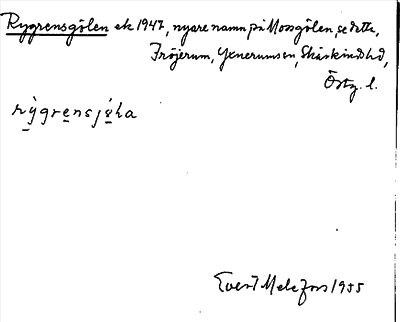 Rygrensgölen ek 1947, nyare namn på Mossgölen, se detta,
Fröjerum, Yxnerums sn, Skärkinds hd,
Östg. l.
rỳgrensjö̀la
Evert Melefors 1955